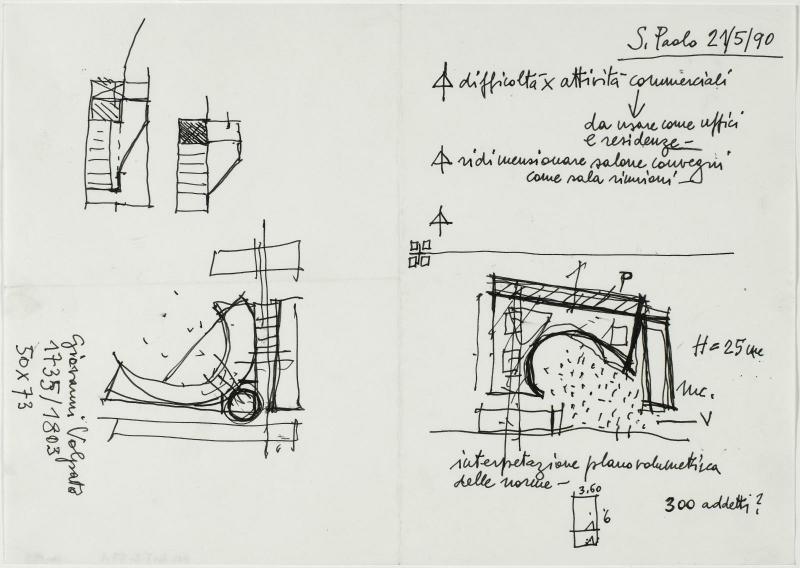 S. Paolo 21/5/90
difficoltà x attività commerciali
da usare come uffici
e residenze –
ridimensionare salone convegni
come sala riunioni –
P
H = 25 m
mc.
V
interpretazione planovolumetrica
delle norme –
3,60
6
300 addetti?
Giovanni Volpato
1735/1803
50 x 73